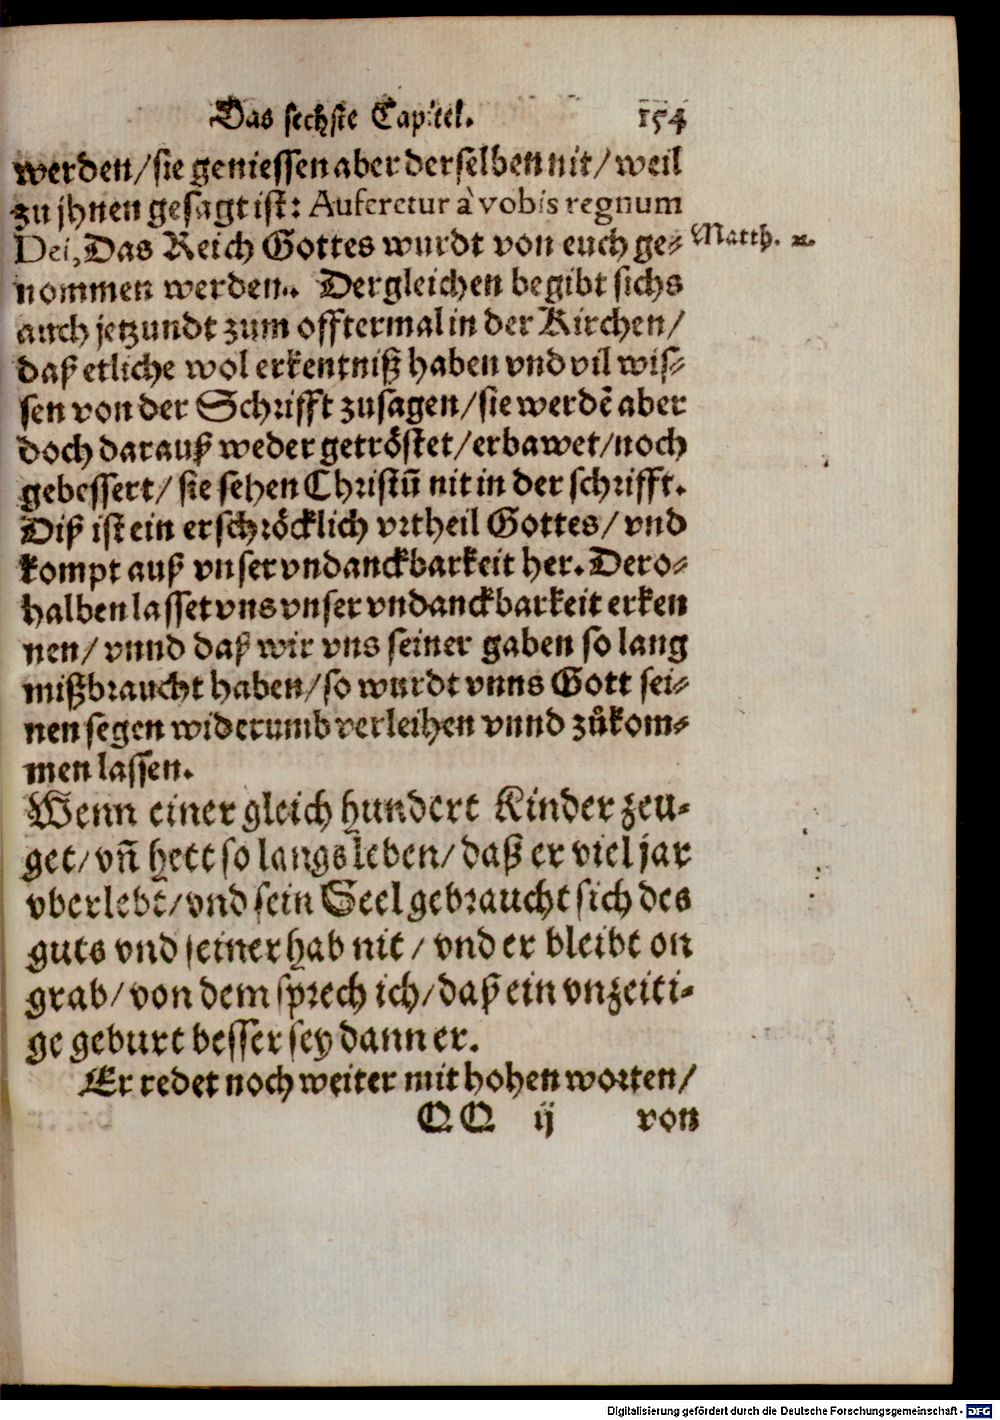 Das sechste Capitel. 154
werden/ sie geniessen aber derselben nit/ weil
zu jhnen gesagt ist: Auferetur à vobis regnum
Dei, Das Reich Gottes wurdt von euch ge⸗
Matth. 21.
nommen werden.. Dergleichen begibt sichs
auch jetzundt zum offtermal in der Kirchen/
daß etliche wol erkentniß haben vnd vil wis⸗
sen von der Schrifft zusagen/ sie werdẽ aber
doch darauß weder getröstet/ erbawet/ noch
gebessert/ sie sehen Christũ nit in der schrifft.
Diß ist ein erschröcklich vrtheil Gottes/ vnd
kompt auß vnser vndanckbarkeit her. Dero⸗
halben lasset vns vnser vndanckbarkeit erken
nen/ vnnd daß wir vns seiner gaben so lang
mißbraucht haben/ so wurdt vnns Gott sei⸗
nen segen widerumb verleihen vnnd zůkom⸗
men lassen.
Wenn einer gleich hundert Kinder zeu⸗
get/ vñ hett so langs leben/ daß er viel jar
vberlebt/ vnd sein Seel gebraucht sich des
guts vnd seiner hab nit/ vnd er bleibt on
grab/ von dem sprech ich/ daß ein vnzeiti⸗
ge geburt besser sey dann er.
Er redet noch weiter mit hohen worten/
QQ ij von
Digitalisierung gefördert durch die Deutsche Forschungsgemeinschaft - DFG